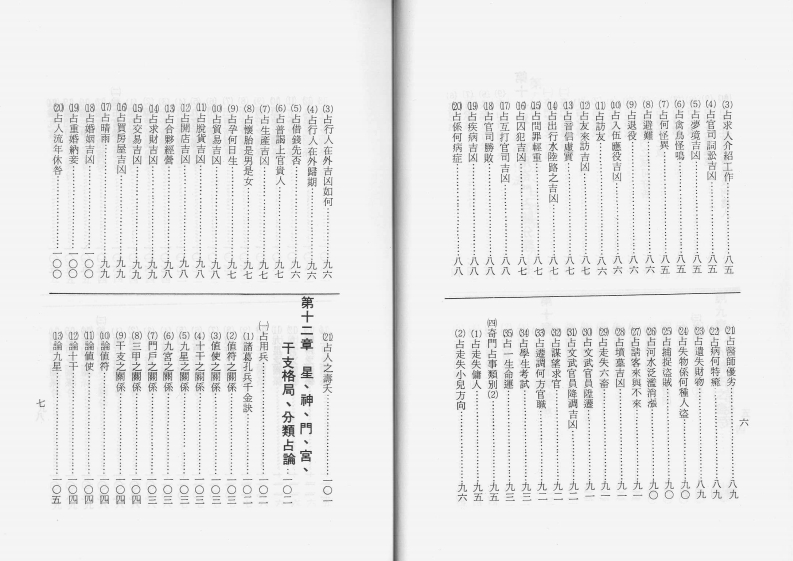 ⑶占求人介紹工作……八五
⑷占官司詞訟吉凶……八五
⑸占夢境吉凶……八五
⑹占禽鳥怪鳴……八五
⑺占何怪異……八五
⑻占避難……八六
⑼占退役……八六
⑽占入伍應役吉凶……八六
⑾占訪友……八六
⑿占友來訪吉凶……八七
⒀占音信虛實……八七
⒁占出行水陸路之吉凶……八七
⒂占問罪輕重……八七
⒃占囚犯吉凶……八七
⒄占互打官司吉凶……八七
⒅占官司勝敗……八八
⒆占疾病吉凶……八八
⒇占係何病症……八八
(21)占醫師優劣……八九
(22)占病何特癥……八九
(23)占遺失財物……八九
(24)占失物係何種人盜……九〇
(25)占捕捉盜賊……九〇
(26)占河水泛濫消漲……九〇
(27)占請客來與不來……九一
(28)占墳墓吉凶……九一
(29)占走失六畜……九一
(30)占文武官員陞遷……九一
(31)占文武官員降調吉凶……九二
(32)占謀望求官……九二
(33)占遷調何方官職……九二
(34)占學生考試……九三
(35)占一生命運……九三
㈣奇門占事類別⑵……九五
⑴占走失傭人……九五
⑵占走失小兒方向……九六
六
⑶占行人在外吉凶如何……九六
⑷占行人在外歸期……九六
⑸占借錢先否……九六
⑹占普謁上官貴人……九七
⑺占生產吉凶……九七
⑻占懷胎是男是女……九七
⑼占孕何日生……九七
⑽占貿易吉凶……九八
⑾占脫貨吉凶……九八
⑿占開店吉凶……九八
⒀占合夥經營……九八
⒁占求財吉凶……九八
⒂占交易吉凶……九九
⒃占買房屋吉凶……九九
⒄占晴雨……九九
⒅占婚姻吉凶……一〇〇
⒆占重婚納妾……一〇〇
⒇占人流年休咎……一〇〇
(21)占人之壽夭……一〇一
第十二章　星、神、門、宮、
干支格局、分類占論……一〇二
㈠占用兵……一〇二
⑴諸葛孔兵千金訣……一〇二
⑵值符之關係……一〇三
⑶值使之關係……一〇三
⑷十干之關係……一〇三
⑸九星之關係……一〇三
⑹九宮之關係……一〇三
⑺門戶之關係……一〇三
⑻三甲之關係……一〇四
⑼干支之關係……一〇四
⑽論值符……一〇四
⑾論值使……一〇四
⑿論十干……一〇四
⒀論九星……一〇五
七